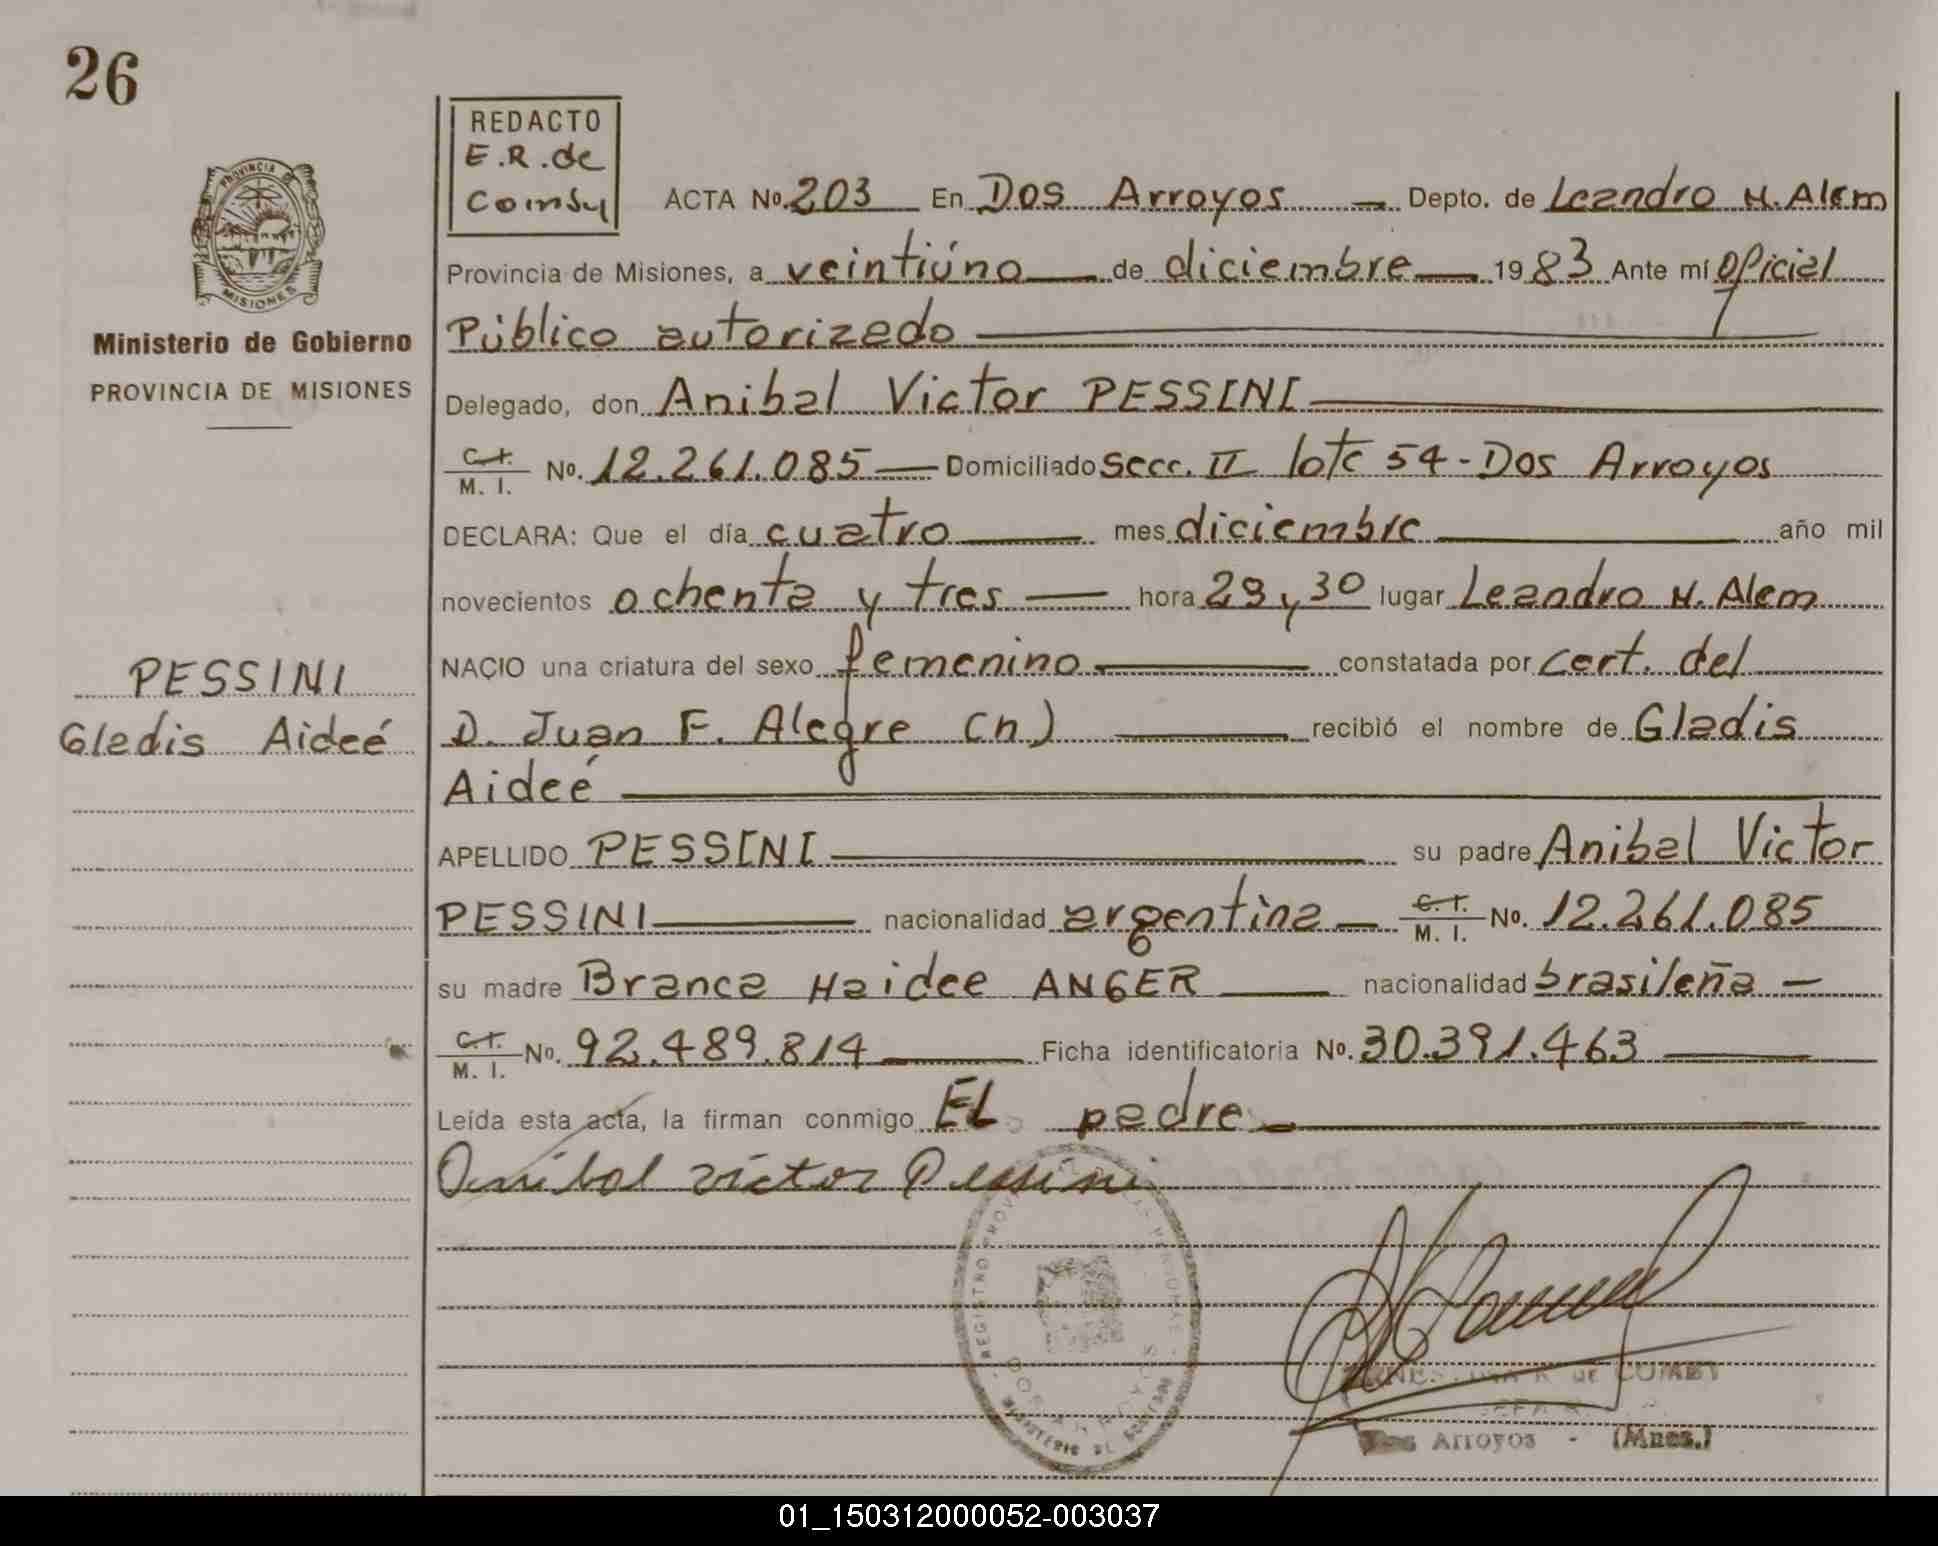 26
REDACTO
E.R. de
Comby
PROVINCIA DE
MISIONES
Ministerio de Gobierno
PROVINCIA DE MISIONES
PESSINI
Gladis Aideé
ACTA No. 203 En Dos Arroyos — Depto. de Leandro N. Alem
Provincia de Misiones, a veintiúno — de diciembre — 1983 Ante mí Oficial
Público autorizado
Delegado, don Anibal Victor PESSINI
C.I. M. I. No. 12.261.085 — Domiciliado secc. II lote 54 - Dos Arroyos
DECLARA: Que el día cuatro — mes diciembre — año mil
novecientos ochenta y tres — hora 23,30 lugar Leandro N. Alem
NACIO una criatura del sexo femenino — constatada por cert. del
D. Juan F. Alegre (h) — recibió el nombre de Gladis
Aideé
APELLIDO PESSINI — su padre Anibal Victor
PESSINI — nacionalidad argentina — C.I. M. I. No. 12.261.085
su madre Branca Haidee ANGER — nacionalidad brasileña —
C.I. M. I. No. 92.489.814 — Ficha identificatoria No. 30.391.463
Leída esta acta, la firman conmigo EL padre
Anibal Victor Pessini
REGISTRO
DOS ARROYOS
MINISTERIO DE GOBIERNO
R. DE COMBY
Dos Arroyos - (Mnes.)
01_150312000052-003037